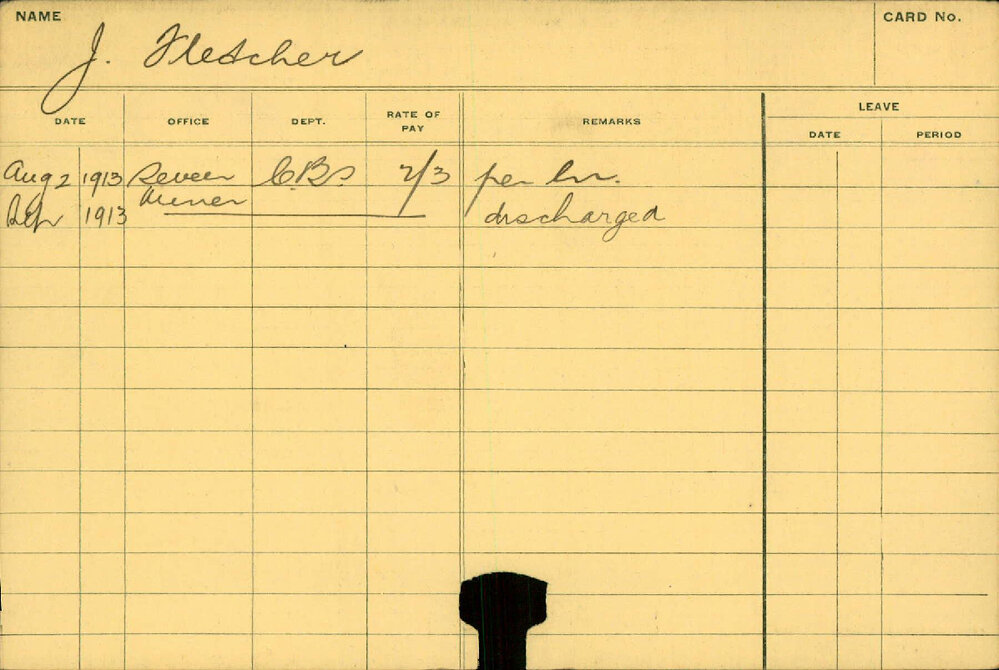 NAME J. Fletcher CARD No.
DATE OFFICE DEPT. RATE OF PAY REMARKS LEAVE
DATE PERIOD
Aug 2 1913 Sewer C.B.S. 2/3 per hr.
Sep 1913 Miner discharged